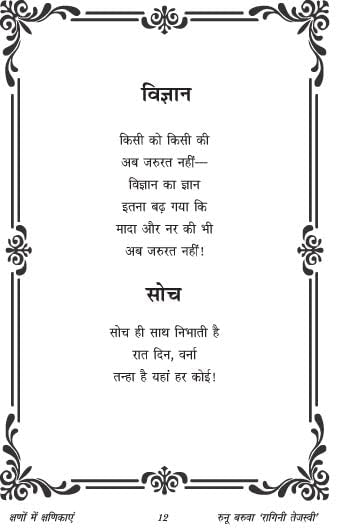 विज्ञान
किसी को किसी की
अब जरुरत नहीं—
विज्ञान का ज्ञान
इतना बढ़ गया कि
मादा और नर की भी
अब जरुरत नहीं!
सोच
सोच ही साथ निभाती है
रात दिन, वर्ना
तन्हा है यहां हर कोई!
क्षणों में क्षणिकाएं 12 रुनू बरुवा ‘रागिनी तेजस्वी’